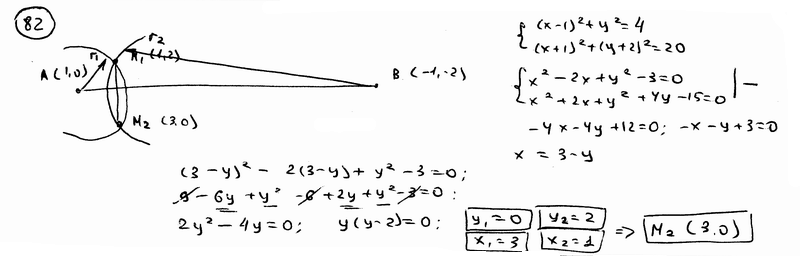 82
r₂
r₁
M₁ (1,2)
A (1,0)
B (-1,-2)
M₂ (3,0)
{ (x-1)²+y²=4
(x+1)²+(y+2)²=20
{ x²-2x+y²-3=0 | -
x²+2x+y²+4y-15=0
-4x-4y+12=0; -x-y+3=0
x = 3-y
(3-y)² - 2(3-y)+ y²-3=0;
9-6y+y²-6+2y+y²-3=0;
2y²-4y=0; y(y-2)=0; y₁=0 y₂=2
x₁=3 x₂=1 => M₂ (3,0)